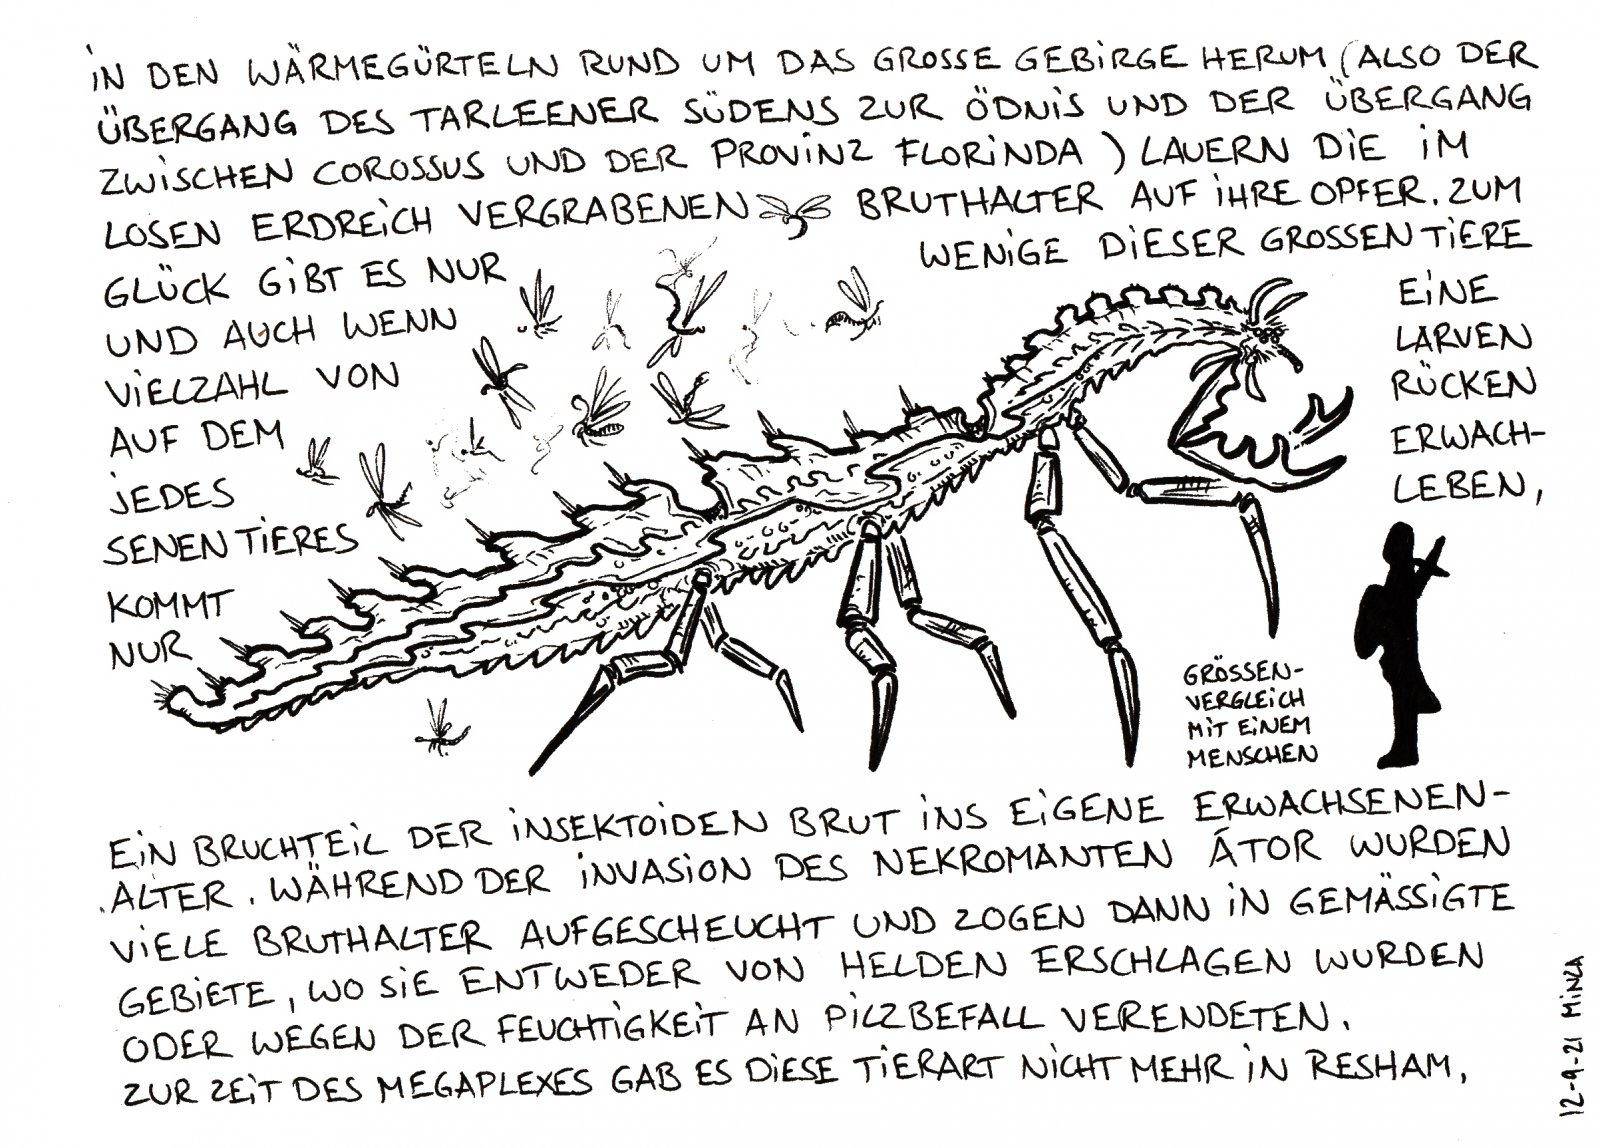 IN DEN WÄRMEGÜRTELN RUND UM DAS GROSSE GEBIRGE HERUM (ALSO DER
ÜBERGANG DES TARLEENER SÜDENS ZUR ÖDNIS UND DER ÜBERGANG
ZWISCHEN COROSSUS UND DER PROVINZ FLORINDA) LAUERN DIE IM
LOSEN ERDREICH VERGRABENEN BRUTHALTER AUF IHRE OPFER. ZUM
GLÜCK GIBT ES NUR WENIGE DIESER GROSSEN TIERE
UND AUCH WENN EINE
VIELZAHL VON LARVEN
AUF DEM RÜCKEN
JEDES ERWACH-
SENEN TIERES LEBEN,
KOMMT
NUR
GRÖSSEN-
VERGLEICH
MIT EINEM
MENSCHEN
EIN BRUCHTEIL DER INSEKTOIDEN BRUT INS EIGENE ERWACHSENEN-
ALTER. WÄHREND DER INVASION DES NEKROMANTEN ÁTOR WURDEN
VIELE BRUTHALTER AUFGESCHEUCHT UND ZOGEN DANN IN GEMÄSSIGTE
GEBIETE, WO SIE ENTWEDER VON HELDEN ERSCHLAGEN WURDEN
ODER WEGEN DER FEUCHTIGKEIT AN PILZBEFALL VERENDETEN.
ZUR ZEIT DES MEGAPLEXES GAB ES DIESE TIERART NICHT MEHR IN RESHAM.
12-9-21 MINZA